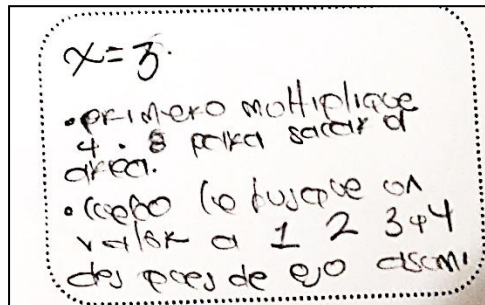 x=3.
• primero moltiplique
4 . 8 para sacar el
area.
• luego le busque un
valor a 1 2 3 y 4
des pues de eso asumi